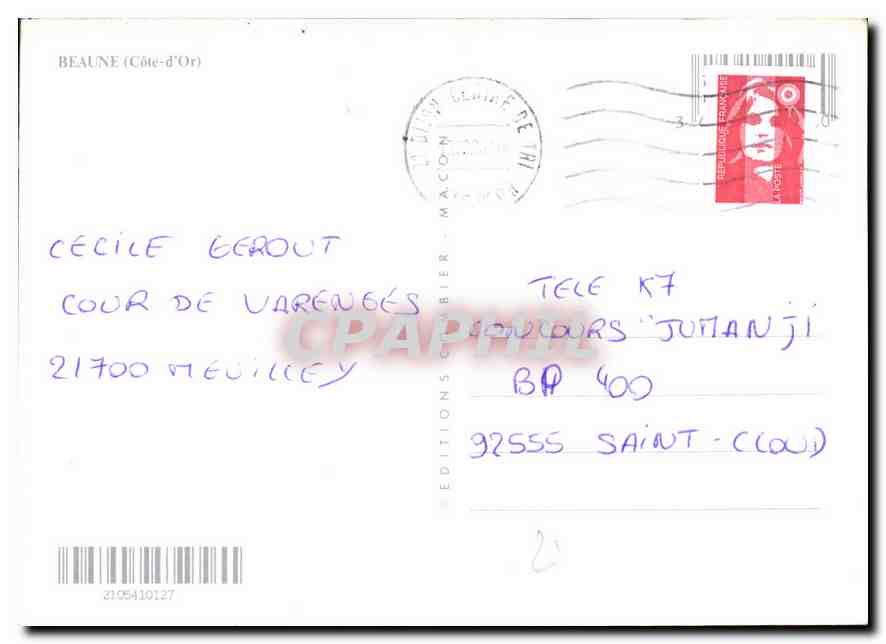 BEAUNE (Côte-d'Or)
DIJON CENTRE DE TRI
RÉPUBLIQUE FRANÇAISE
LA POSTE
CECILE GEROUT
COUR DE VARENGES
21700 MEUILLEY
TELE K7
CONCOURS "JUMANJI
BP 400
92555 SAINT-CLOUD
EDITIONS COMBIER - MACON
CPAPHIL
2105410127